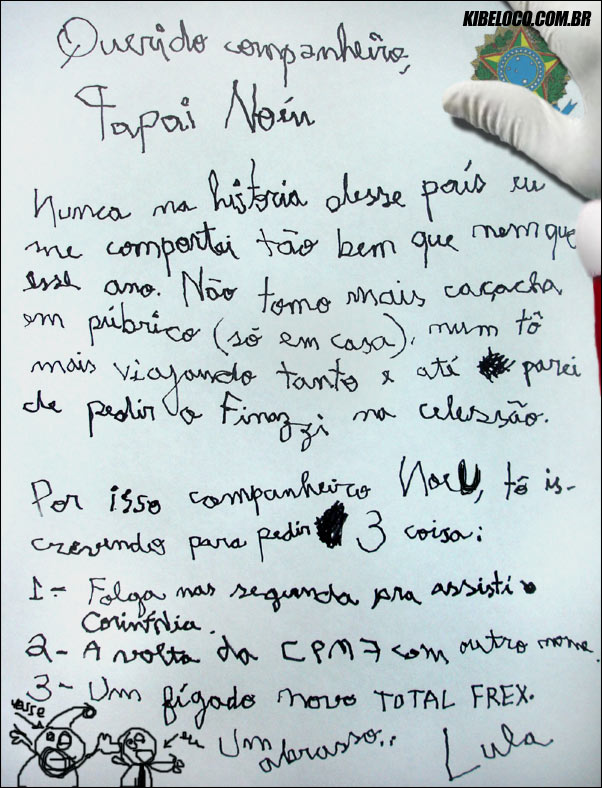 KIBELOCO.COM.BR
Querido companheiro,
Papai Noéu
Nunca na historia desse país eu
me comportei tão bem que nem que
esse ano. Não tomo mais caçacha
em púbrico (só em casa), num tô
mais viajando tanto e até parei
de pedir o Finazzi na celessão.
Por isso companheiro NoeU, tô is-
crevendo para pedir 3 coisa:
1- Folga nas segunda pra assisti o
Coríntia.
2- A volta da CPMF com outro nome.
3- Um fígado novo TOTAL FREX.
vosse
eu
Um abrasso..
Lula